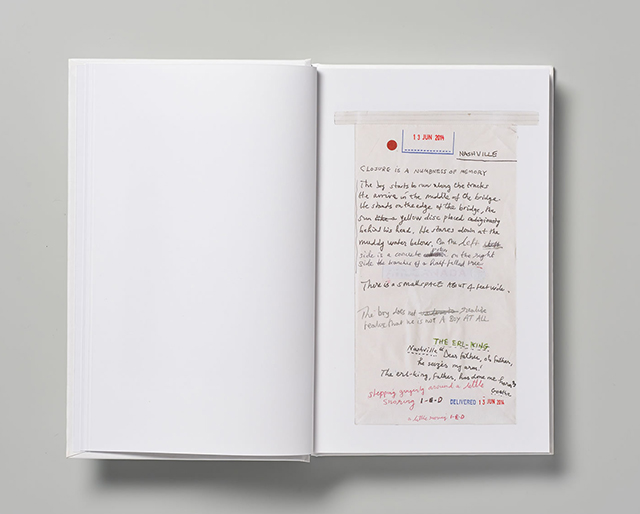 13 JUN 2014
NASHVILLE
CLOSURE IS A NUMBNESS OF MEMORY
The boy starts to run along the tracks
He arrives in the middle of the bridge
He stands on the edge of the bridge, the
sun like a yellow disc placed
behind his head. He stares down at the
muddy water below. On the left
side is a concrete on the right
side the branches of a half-felled tree
There is a small space about 4 feet wide.
The boy does not
realise that he is not A BOY AT ALL
THE ERL-KING
Nashville "Dear father, oh father,
he seizes my arm!
The erl-king, father, has done me harm"
Goethe
stepping gingerly around a little
snoring I-E-D
DELIVERED 13 JUN 2014
a little snoring I-E-D